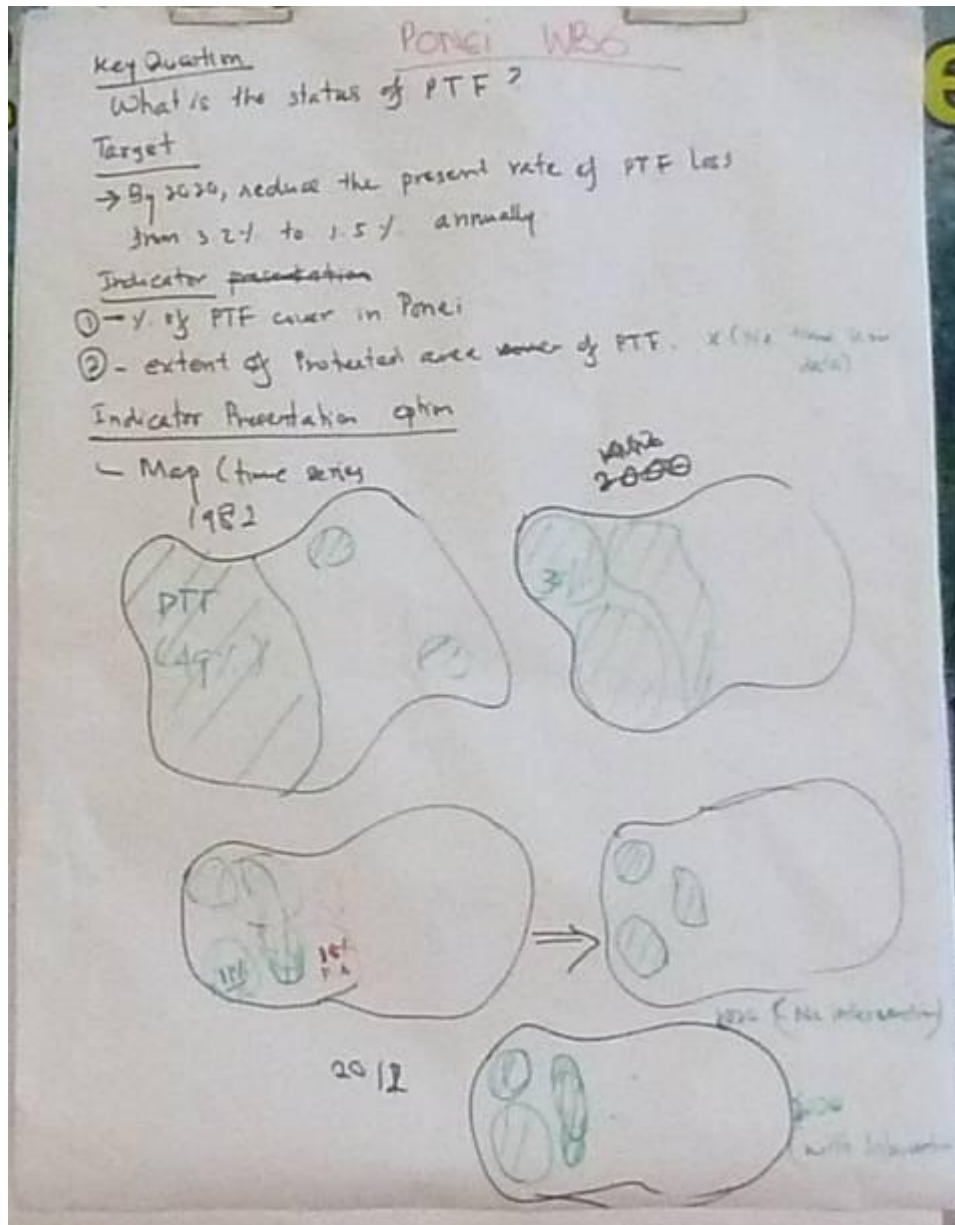 PONEI WB6
Key Question
What is the status of PTF?
Target
→ By 2020, reduce the present rate of PTF Loss
from 3.2% to 1.5% annually
Indicator presentation
① - % of PTF cover in Ponei
② - extent of Protected area of PTF. x (No time
data)
Indicator Presentation option
- Map (time series
1982
2000
PTF
15%
2012
(No intervention)